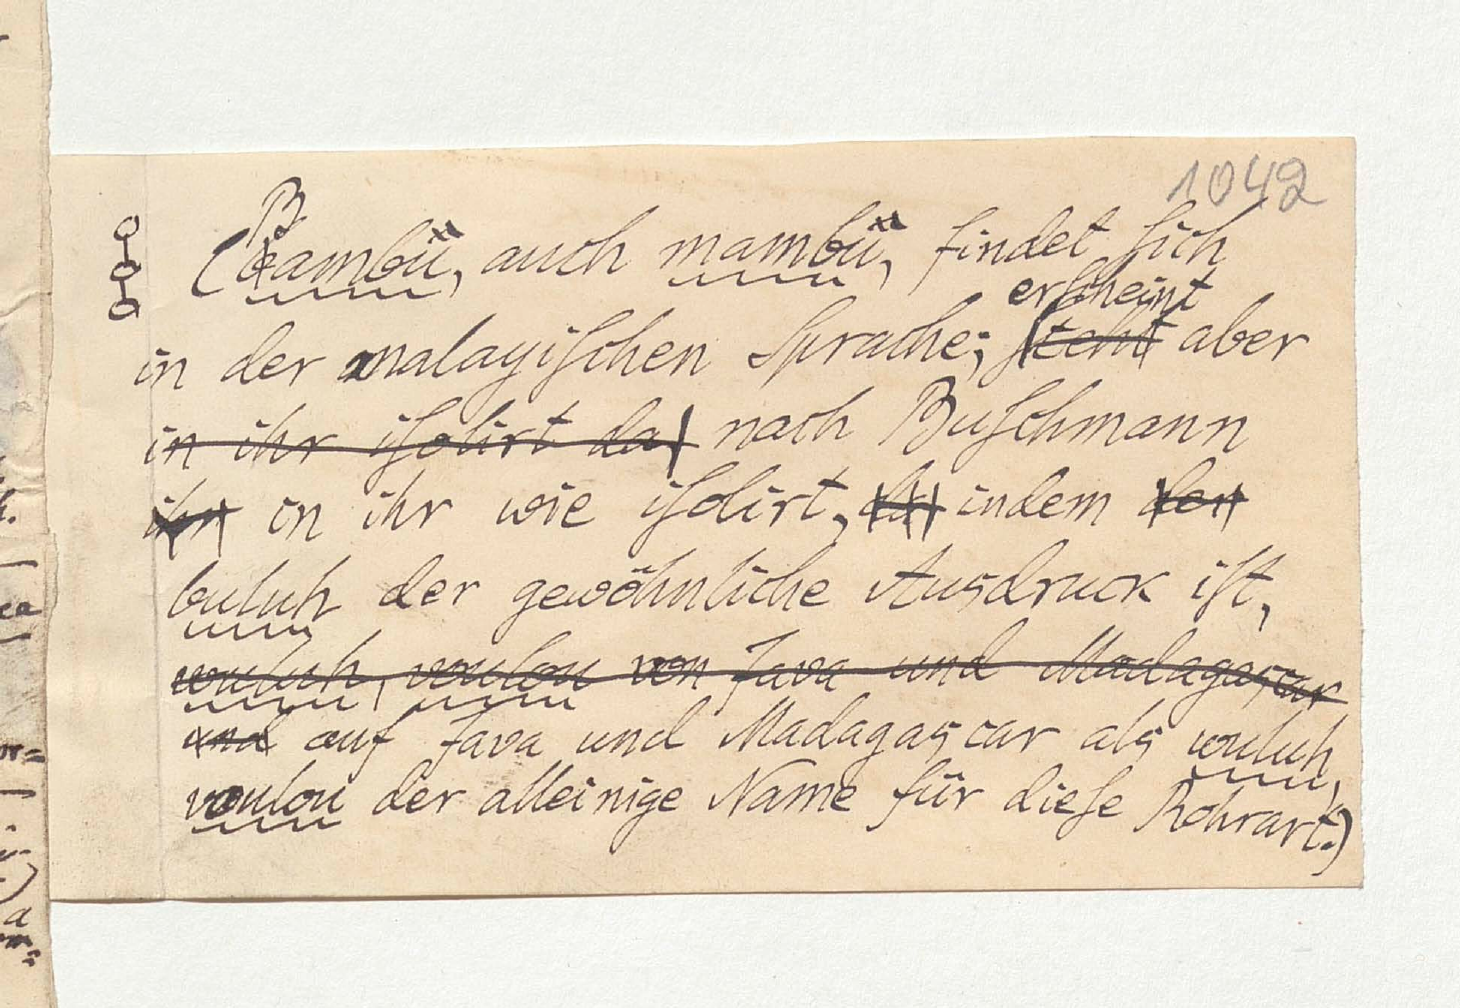 1042
(Bambü, auch mambü, findet ſich
erſcheint
in der malayiſchen Sprache; ſteht aber
in ihr iſolirt da nach Buſchmann
ihn in ihr wie iſolirt, da indem den
buluh der gewöhnliche Ausdruck iſt,
wuluh, voulou von Java und Madagascar
und auf Java und Madagascar als wuluh,
voulou der alleinige Name für dieſe Rohrart.)